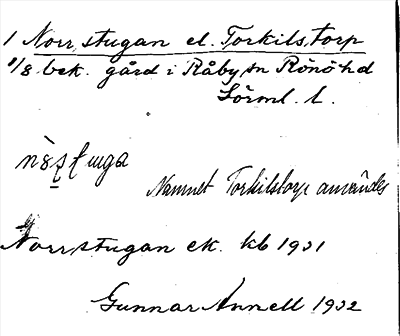 1 Norrstugan el. Torkilstorp
1/8 bek. gård i Råby sn Rönö hd
Sörml. l.
Namnet Torkilstorp användes
Norrstugan ek. kb 1931
Gunnar Annell 1932